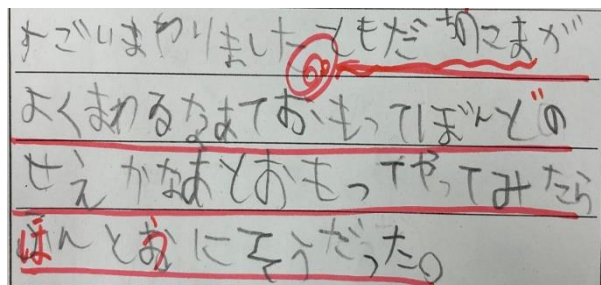 すごいまわりました。ともだちのこまが
よくまわるなあておもってぼんどの
せえかなあとおもってやってみたら
ほんとうにそうだった。